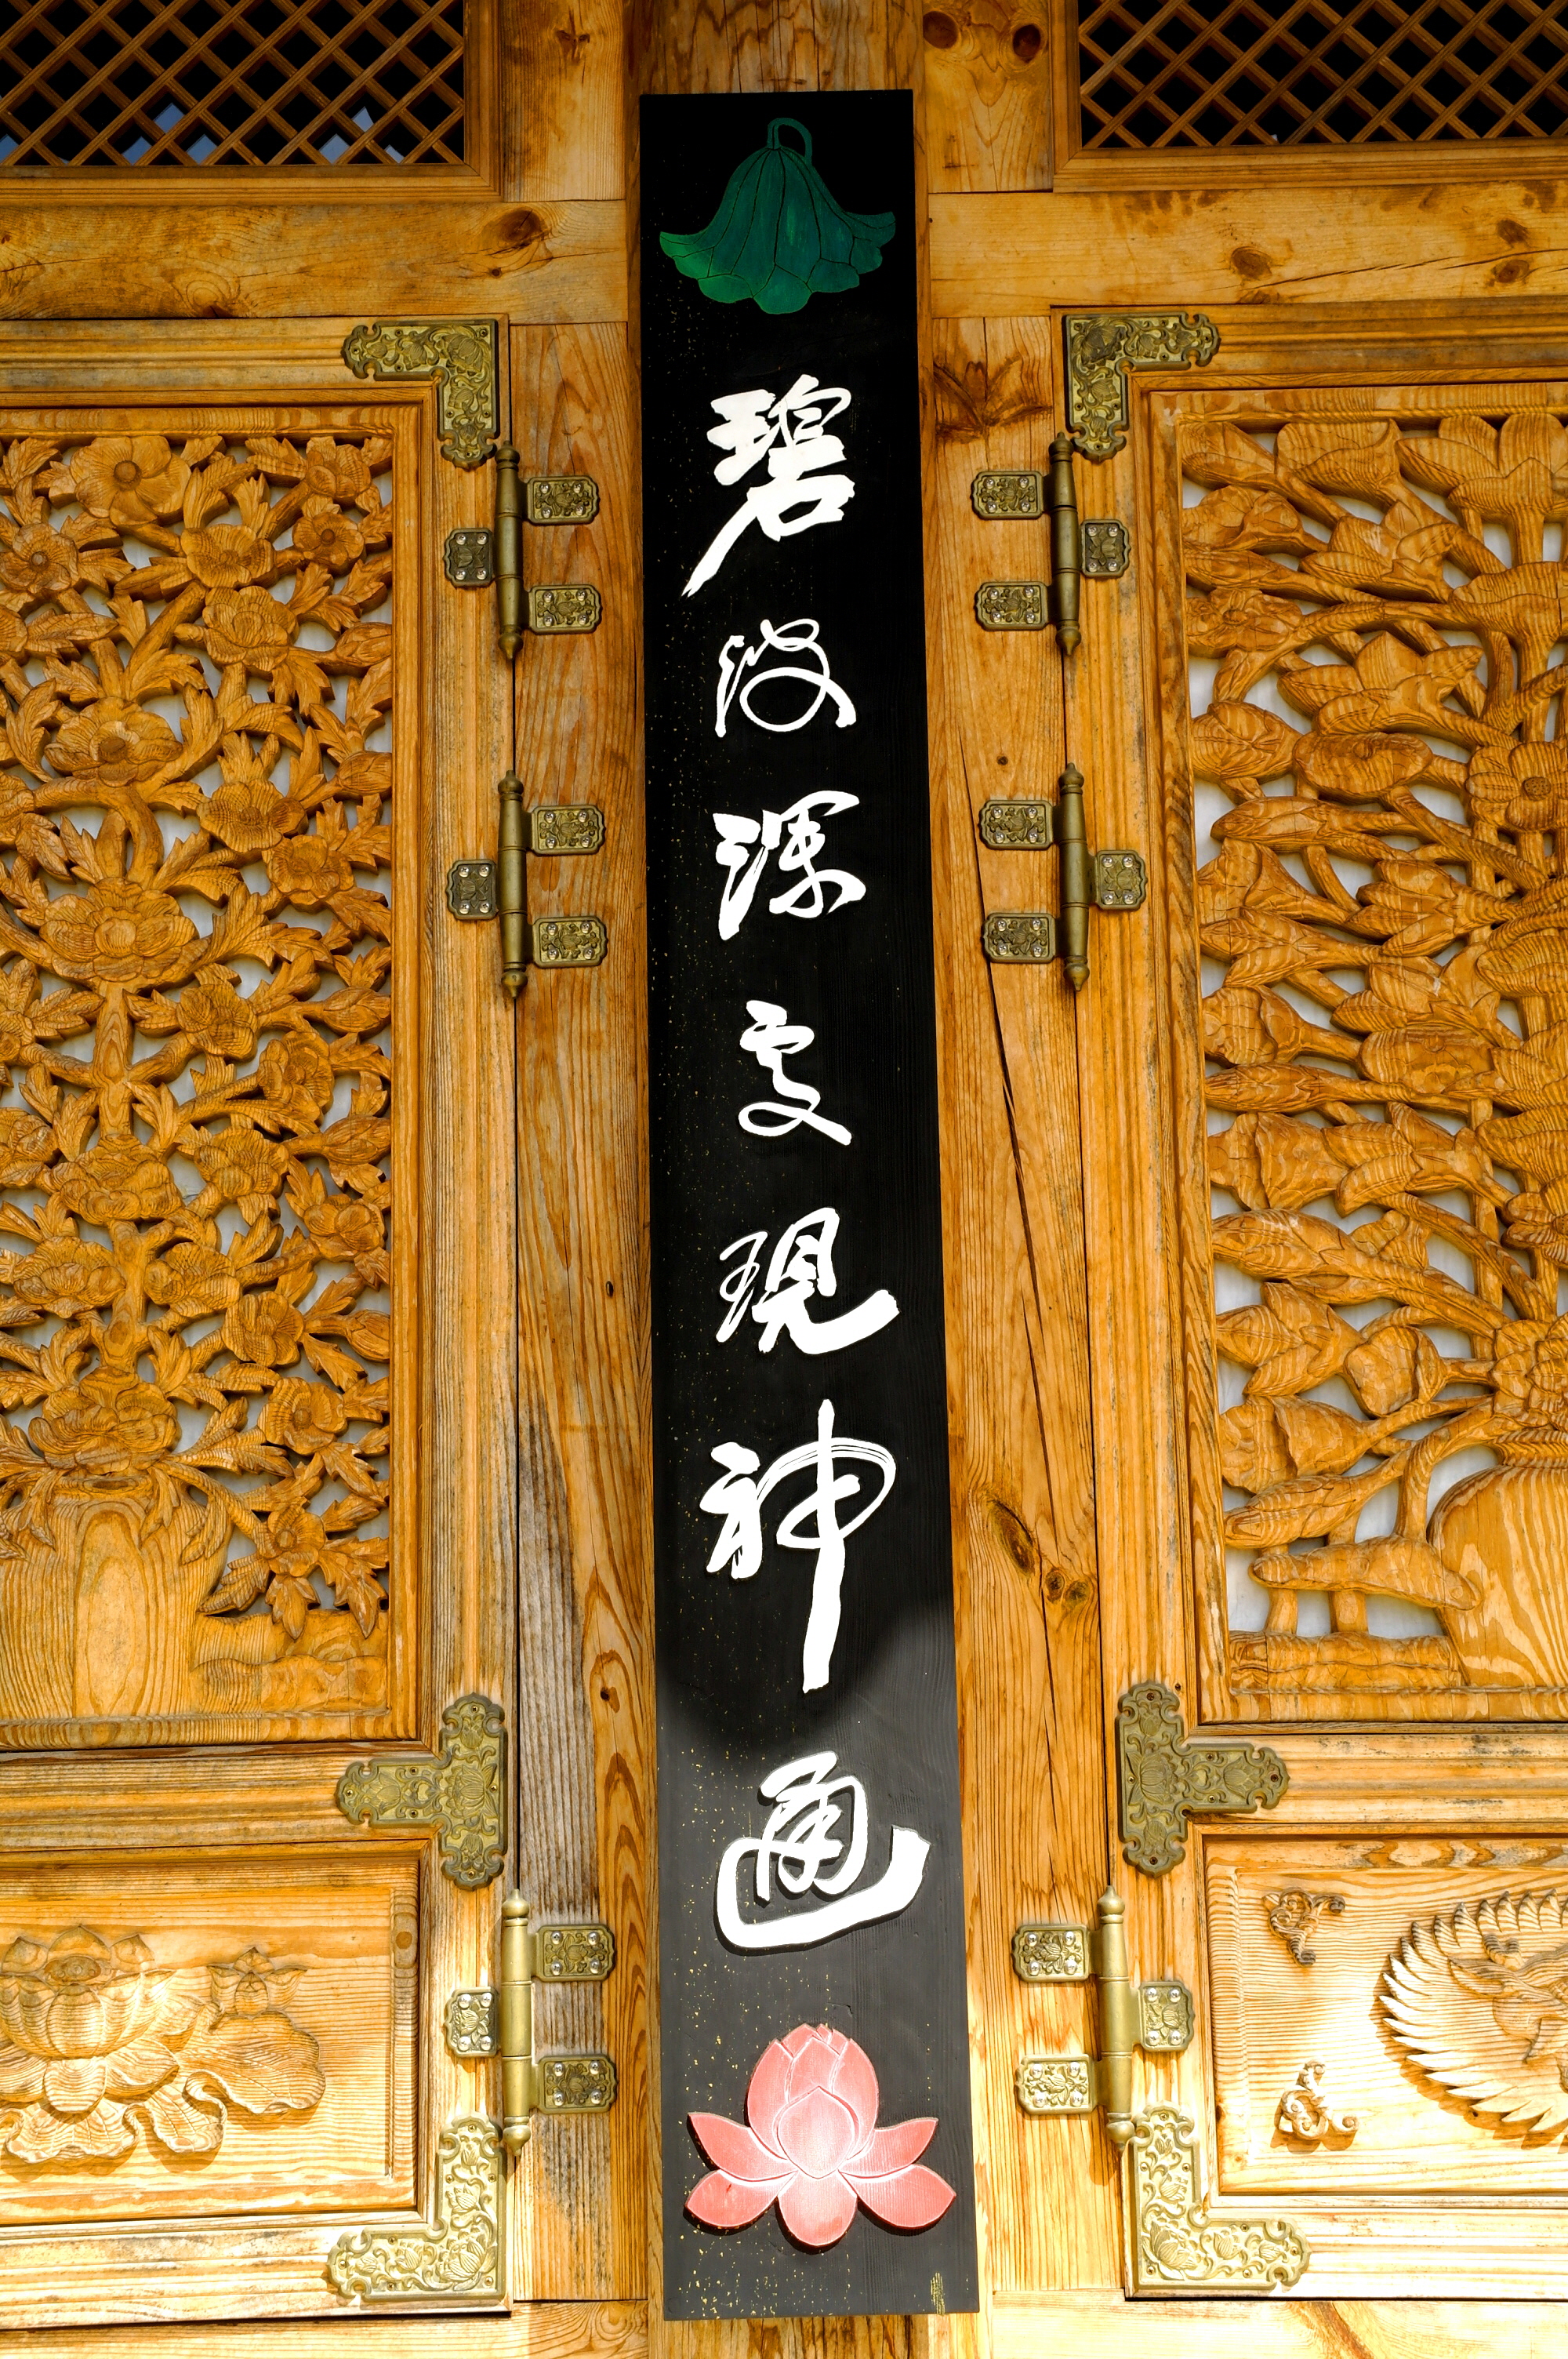 碧波深處現神通